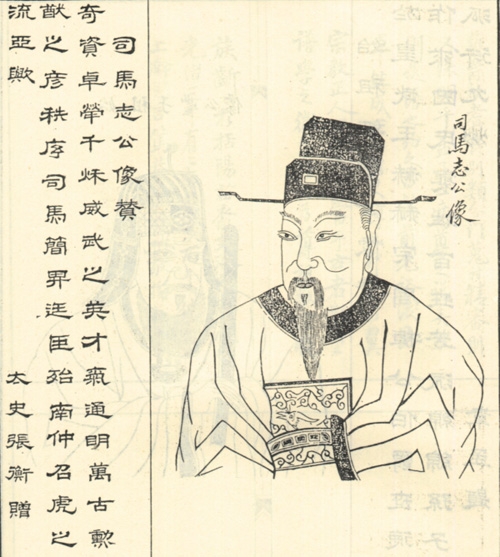 司馬志公像
司馬志公像贊
奇資卓犖千秋威武之英才氣通明萬古勳
猷之彥秩序司馬簡昇廷臣殆南仲召虎之
流亞歟 太史張衡贈